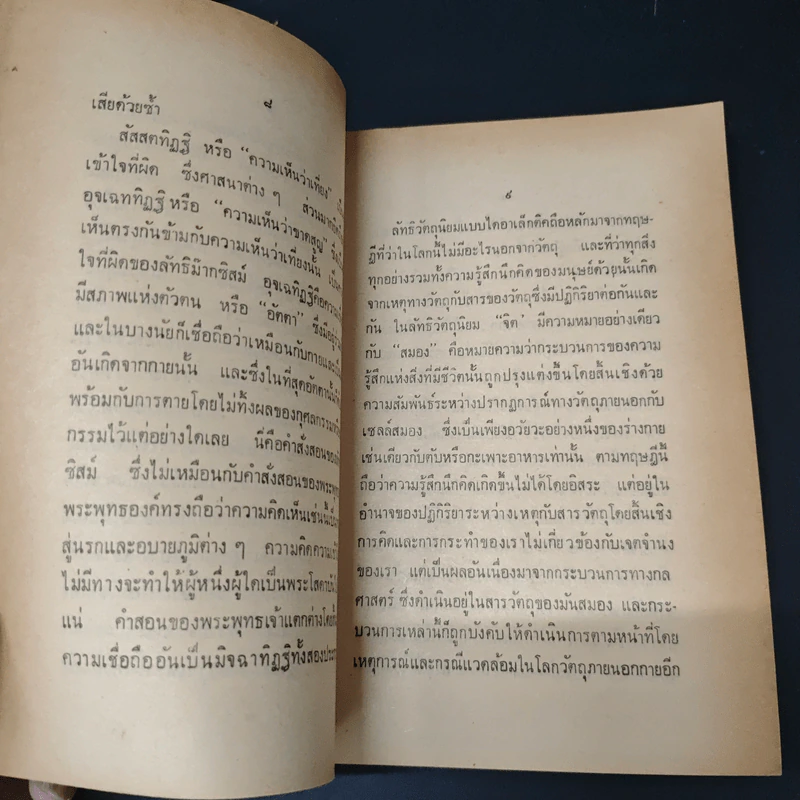 ๘
เสียด้วยซ้ำ
สัสสตทิฏฐิ หรือ “ความเห็นว่าเที่ยง”
เข้าใจที่ผิด ซึ่งศาสนาต่าง ๆ ส่วนมาก
อุจเฉททิฏฐิ หรือ “ความเห็นว่าขาดสูญ”
เห็นตรงกันข้ามกับความเห็นว่าเที่ยงนั้น
ใจที่ผิดของลัทธิม๊ากซิสม์ อุจเฉทิฏฐิคือความ
มีสภาพแห่งตัวตน หรือ “อัตตา”
และในบางนัยก็เชื่อถือว่าเหมือนกับกาย
อันเกิดจากกายนั้น และซึ่งในที่สุดอัตตานั้น
พร้อมกับการตายโดยไม่ทิ้งผลของกุศลกรรม
กรรมไว้แต่อย่างใดเลย นี่คือคำสั่งสอนของ
ซิสม์ ซึ่งไม่เหมือนกับคำสั่งสอนของพระพุทธ
พระพุทธองค์ทรงถือว่าความคิดเห็นเช่นนี้
สู่นรกและอบายภูมิต่าง ๆ ความคิดความ
ไม่มีทางจะทำให้ผู้หนึ่งผู้ใดเป็นพระโสดาบัน
แน่ คำสอนของพระพุทธเจ้าแตกต่างโดย
ความเชื่อถืออันเป็นมิจฉาทิฏฐิทั้งสอง
๙
ลัทธิวัตถุนิยมแบบไดอาเล็กติคถือหลักมาจากทฤษ-
ฎีที่ว่าในโลกนี้ไม่มีอะไรนอกจากวัตถุ และที่ว่าทุกสิ่ง
ทุกอย่างรวมทั้งความรู้สึกนึกคิดของมนุษย์ด้วยนั้นเกิด
จากเหตุทางวัตถุกับสารของวัตถุซึ่งมีปฏิกิริยาต่อกันและ
กัน ในลัทธิวัตถุนิยม “จิต’ มีความหมายอย่างเดียว
กับ “สมอง” คือหมายความว่ากระบวนการของความ
รู้สึกแห่งสิ่งที่มีชีวิตนั้นถูกปรุงแต่งขึ้นโดยสิ้นเชิงด้วย
ความสัมพันธ์ระหว่างปรากฏการณ์ทางวัตถุภายนอกกับ
เซลล์สมอง ซึ่งเป็นเพียงอวัยวะอย่างหนึ่งของร่างกาย
เช่นเดียวกับตับหรือกะเพาะอาหารเท่านั้น ตามทฤษฎีนี้
ถือว่าความรู้สึกนึกคิดเกิดขึ้นไม่ได้โดยอิสระ แต่อยู่ใน
อำนาจของปฏิกิริยาระหว่างเหตุกับสารวัตถุโดยสิ้นเชิง
การคิดและการกระทำของเราไม่เกี่ยวข้องกับเจตจำนง
ของเรา แต่เป็นผลอันเนื่องมาจากกระบวนการทางกล
ศาสตร์ ซึ่งดำเนินอยู่ในสารวัตถุของมันสมอง และกระ-
บวนการเหล่านี้ก็ถูกบังคับให้ดำเนินการตามหน้าที่โดย
เหตุการณ์และกรณีแวดล้อมในโลกวัตถุภายนอกกายอีก